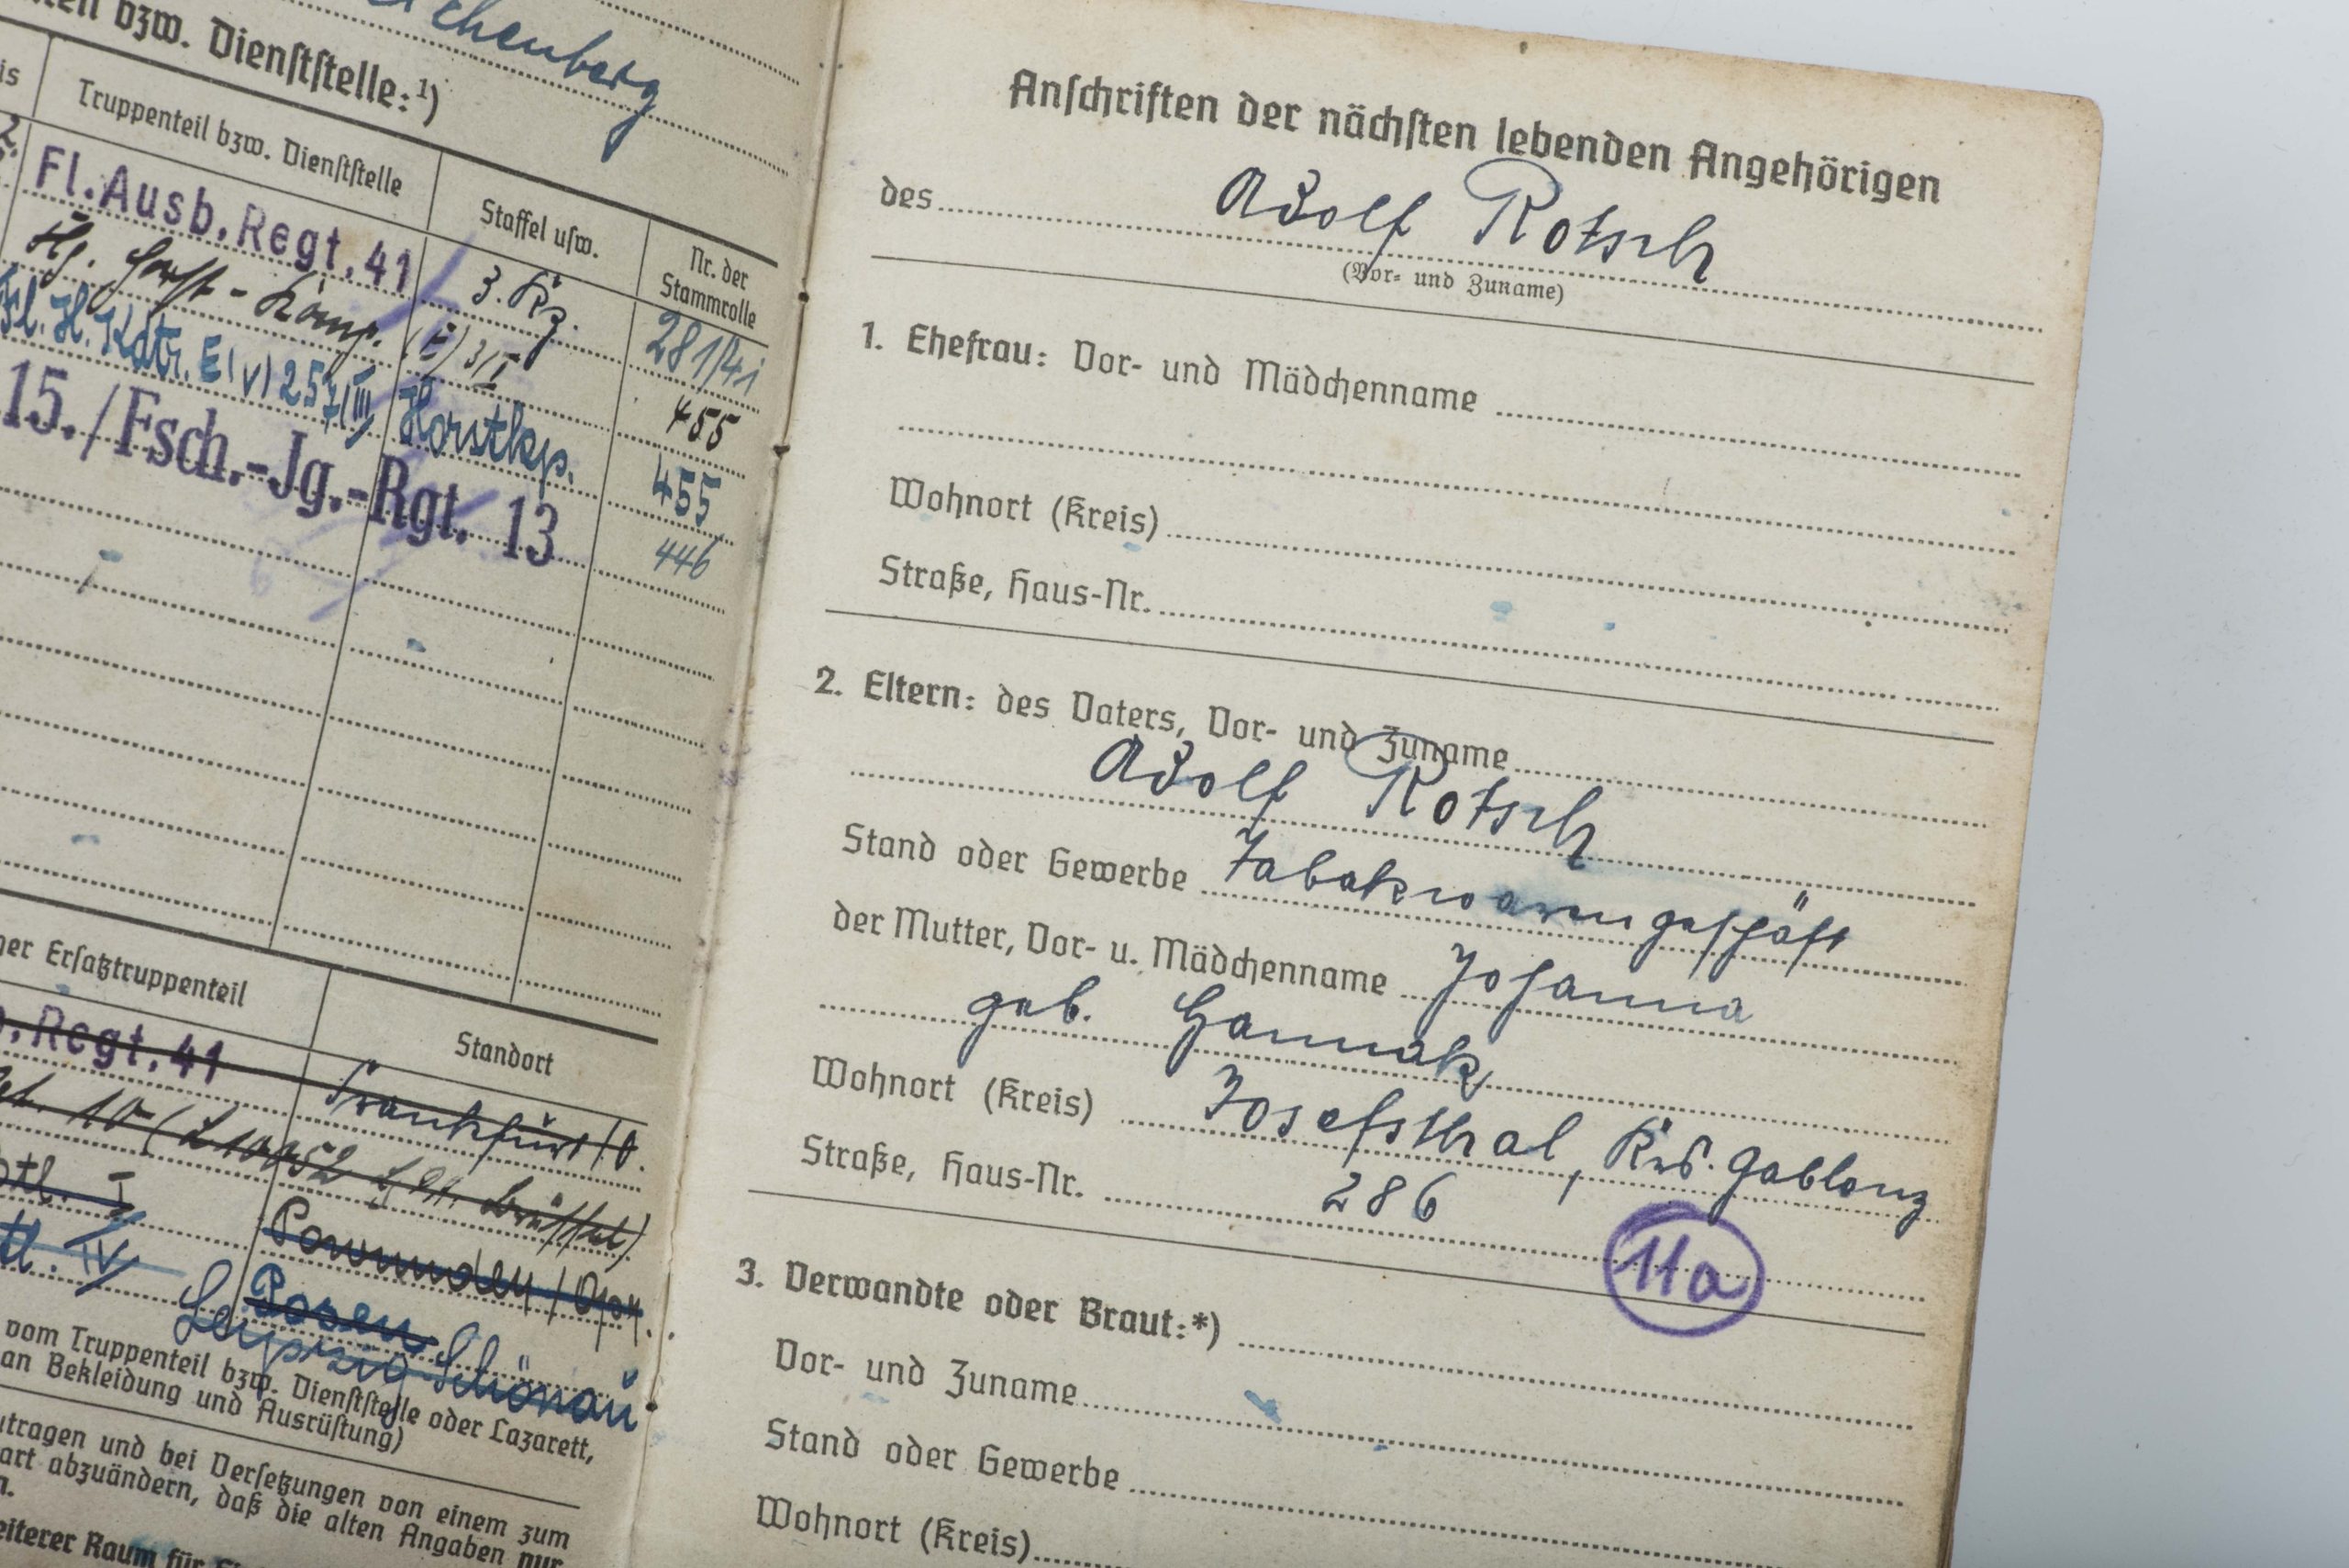 chenberg
bzw. Dienststelle:¹)
Truppenteil bzw. Dienststelle
Staffel usw.
Nr. der
Stammrolle
Fl. Ausb. Regt. 41
3. Kp.
281/41
Horst-Komp.
455
Fl. H. Kdtr. E (v) 257/III
Horstkp.
455
15./Fsch.-Jg.-Rgt. 13
446
Ersatztruppenteil
Standort
Regt. 41
Frankfurt/O.
Posen
Leipzig-Schönau
vom Truppenteil bzw. Dienststelle oder Lazarett,
an Bekleidung und Ausrüstung)
tragen und bei Versetzungen von einem zum
art abzuändern, daß die alten Angaben nur
Raum für
Anschriften der nächsten lebenden Angehörigen
des Adolf Rotsch
(Vor- und Zuname)
1. Ehefrau: Vor- und Mädchenname
Wohnort (Kreis)
Straße, Haus-Nr.
2. Eltern: des Vaters, Vor- und Zuname
Adolf Rotsch
Stand oder Gewerbe Tabakwarengeschäft
der Mutter, Vor- u. Mädchenname Johanna
geb. Hannak
Wohnort (Kreis) Josefsthal, Krs. Gablonz
Straße, Haus-Nr. 286
11a
3. Verwandte oder Braut:*)
Vor- und Zuname
Stand oder Gewerbe
Wohnort (Kreis)